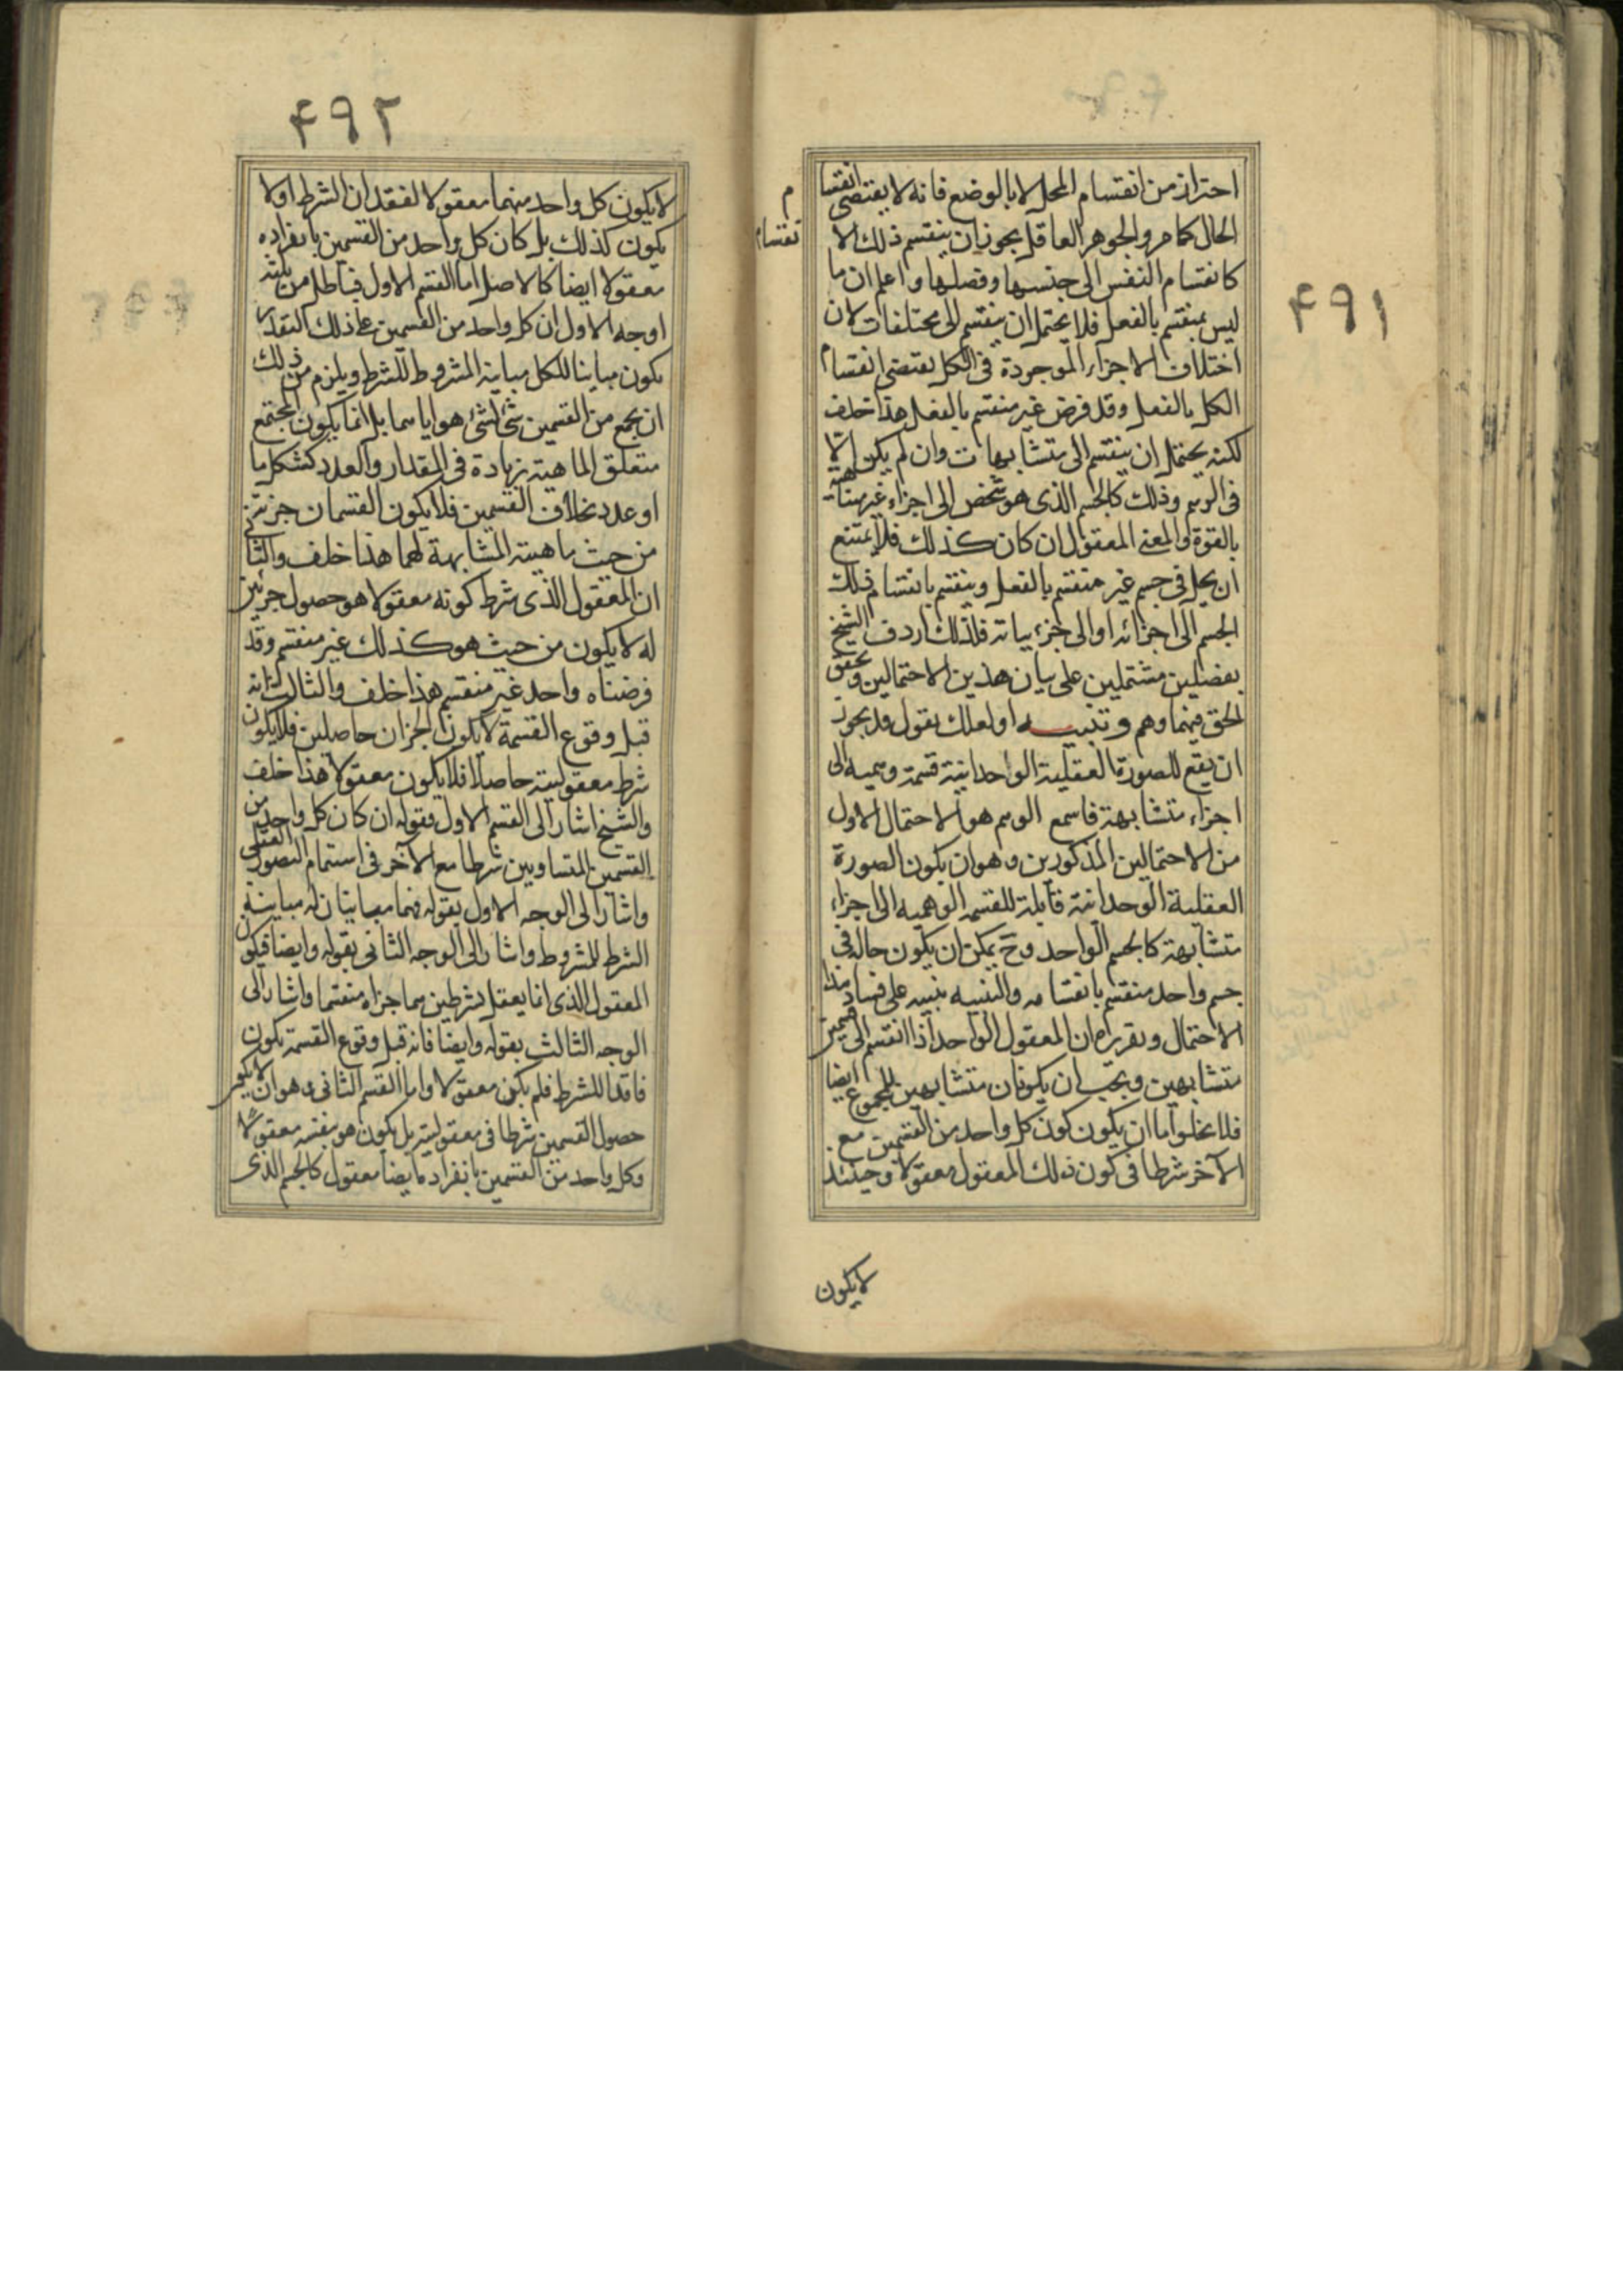 ۴۹۱
احتراز من انقسام المحل لا بالوضع فانه لا يقتضى انقسا
م
الحال كما مر والجوهر العاقل يجوز ان ينقسم ذلك الا
نقسام
كانقسام النفس الى جنسها وفصلها واعلم ان ما
ليس بمنقسم بالفعل فلا يحتمل ان ينقسم الى مختلفات لان
اختلاف الاجزاء الموجودة فى الكل يقتضى انقسام
الكل بالفعل وقد فرض غير منقسم بالفعل هذا خلف
لكنه يحتمل ان ينقسم الى متشابهات وان لم يكن الا
فى الوهم وذلك كالجسم الذى هو شخص الى اجزاء غير متناهية
بالقوة والمعنى المعقول ان كان كذلك فلا يمتنع
ان يحل فى جسم غير منقسم بالفعل وينقسم بانقسام ذلك
الجسم الى اجزائه او الى جزئياته فلذلك اردف الشيخ
بفصلين مشتملين على بيان هذين الاحتمالين وتحقق
الحق فيهما وهم وتنبيه او لعلك تقول قد يجوز
ان يقع للصورة العقلية الواحدانية قسمة وهمية الى
اجزاء متشابهة فاسمع الوهم هو الاحتمال الاول
من الاحتمالين المذكورين وهو ان يكون الصورة
العقلية الوحدانية قابلة للقسمة الوهمية الى اجزاء
متشابهة كالجسم الواحد وح يمكن ان يكون حاله فى
جسم واحد منقسم بانقسامه والتنبيه بنبيه على فساد هذا
الاحتمال وتقريره ان المعقول الواحد اذا انقسم الى قسمين
متشابهين ويجب ان يكونان متشابهين للمجموع ايضا
فلا يخلوا ما ان يكون كون كل واحد من القسمين مع
الآخر شرطا فى كون ذلك المعقول معقولا وحينئذ
لا يكون
۴۹۲
لا يكون كل واحد منهما معقولا لفقدان الشرط اولا
يكون كذلك بل كان كل واحد من القسمين بانفراده
معقولا ايضا كالاصل اما القسم الاول فباطل من ثلثه
اوجه الاول ان كل واحد من القسمين على ذلك التقدير
يكون مباينا للكل مباينة المشروط للشرط ويلزم من ذلك
ان يجمع من القسمين شئ لشئ هو اياهما بل انما يكون المجتمع
متعلق الماهية بزيادة فى المقدار والعدد كشكل ما
او عدد بخلاف القسمين فلا يكون القسمان جزئين
من حيث ماهيته المشابهة لهما هذا خلف والثانى
ان المعقول الذى شرط كونه معقولا هو حصول جزئين
له لا يكون من حيث هو كذلك غير منقسم وقد
فرضناه واحد غير منقسم هذا خلف والثالث انه
قبل وقوع القسمة لا يكون الجزان حاصلين فلا يكون
شرط معقوليته حاصلا فلا يكون معقولا هذا خلف
والشيخ اشار الى القسم الاول فقوله ان كان كل واحد من
القسمين المتساويين شرطا مع الآخر فى استتمام التصور العقلى
واشار الى الوجه الاول بقوله فهما مباينان له مباينة
الشرط للمشروط واشار الى الوجه الثانى بقوله وايضا فيكون
المعقول الذى انما يعقل بشرطين هما جزاه منقسما واشار الى
الوجه الثالث بقوله وايضا فانه قبل وقوع القسمة يكون
فاقدا للشرط فلم يكن معقولا واما القسم الثانى وهو ان لا يكون
حصول القسمين شرطا فى معقوليته بل يكون هو بنفسه معقولا
وكل واحد من القسمين بانفراده ايضا معقول كالجسم الذى